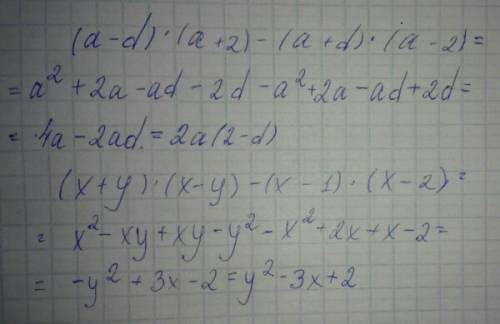 (a-d)·(a+2)-(a+d)·(a-2)=
=a²+2a-ad-2d-a²+2a-ad+2d=
=4a-2ad=2a(2-d)
(x+y)·(x-y)-(x-1)·(x-2)=
=x²-xy+xy-y²-x²+2x+x-2=
=-y²+3x-2=y²-3x+2